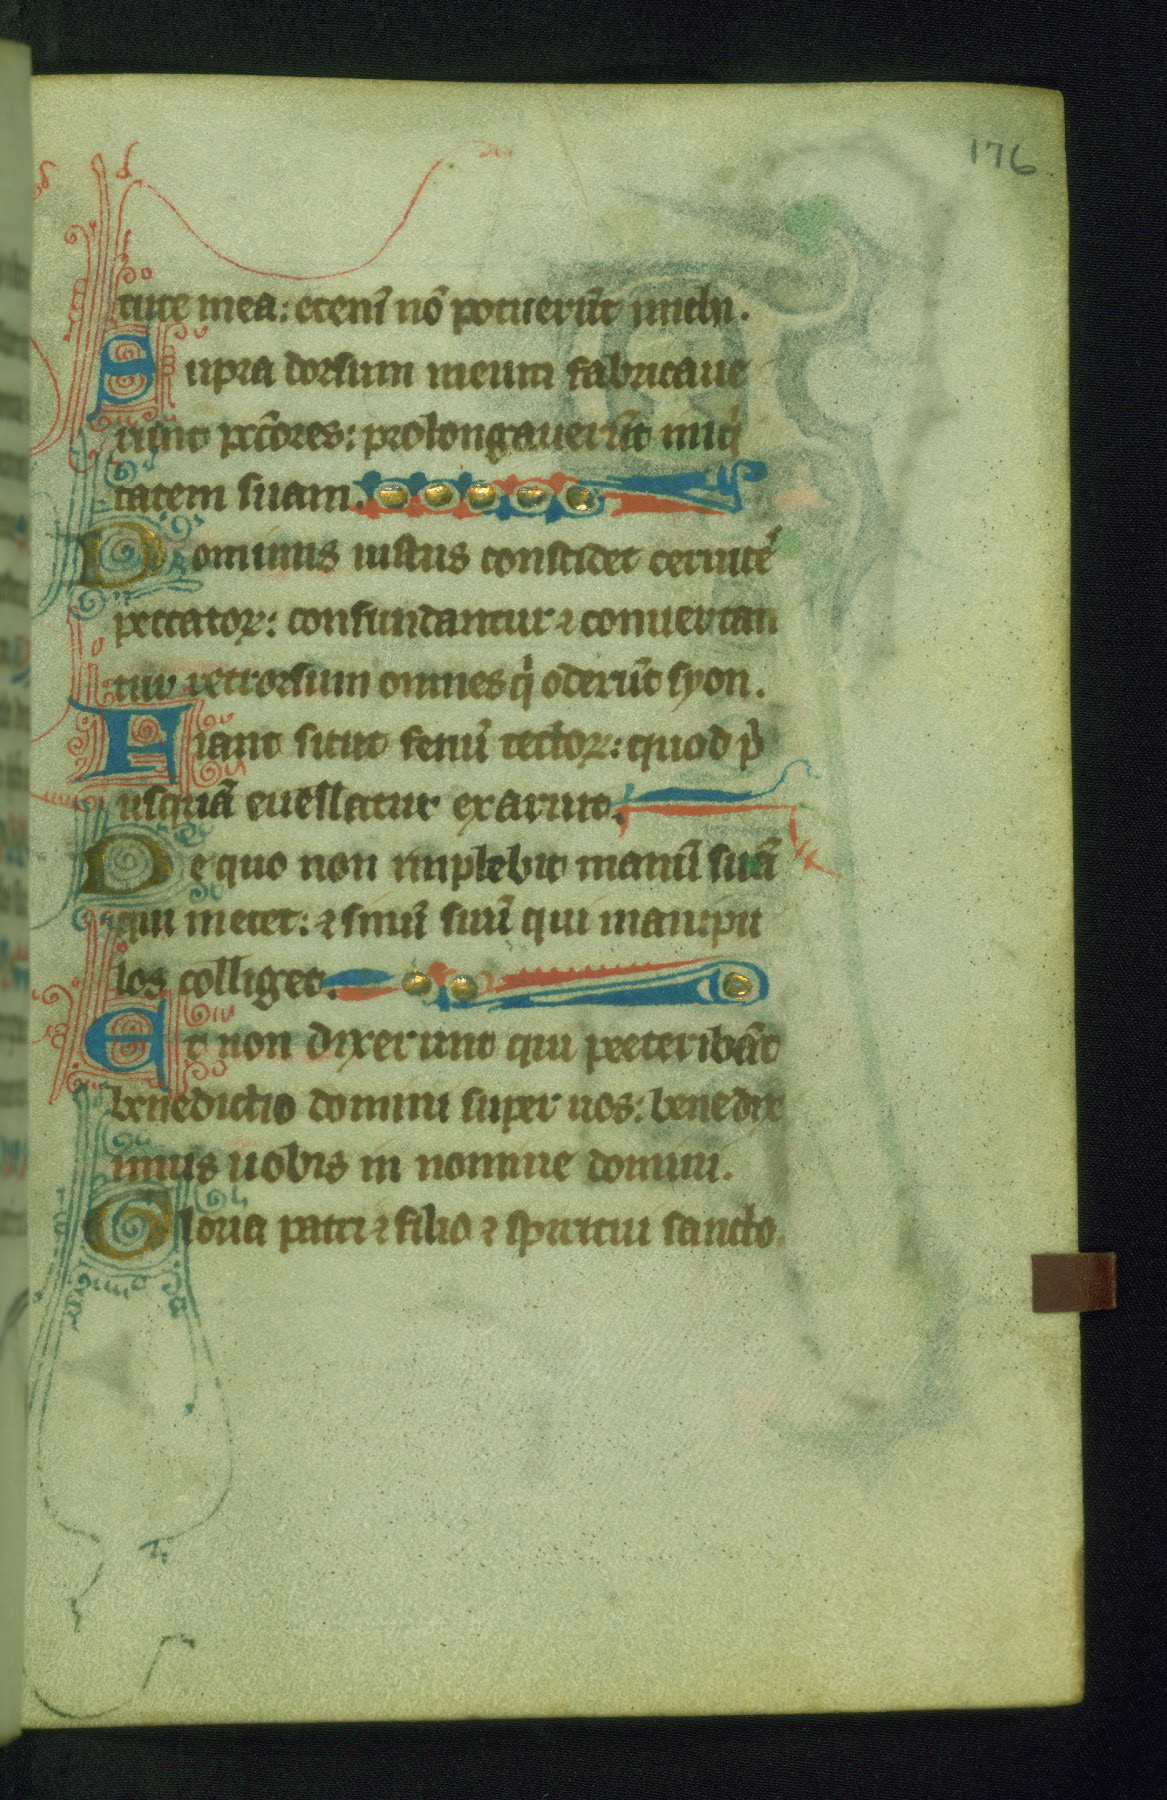 176
tute mea: eteni̅ no̅ potueru̅t michi.
Supra dorsum meum fabricaue
runt pcc̅ores: prolongaueru̅t iniq̍
tatem suam.
Dominus iustus concidet ceruice̅
peccatoꝝ: confundantur ⁊ conuertan
tur retrorsum omnes q̍ oderu̅t syon.
Fiant sicut fenu̅ tectoꝝ: quod p̍
usqua̅ euellatur exaruit.
De quo non implebit manu̅ sua̅
qui metet: ⁊ sinu̅ suu̅ qui manipu
los colliget.
Et non dixerunt qui preteriba̅t
benedictio domini super uos: benedix
imus uobis in nomine domini.
Gloria patri ⁊ filio ⁊ spiritui sancto.